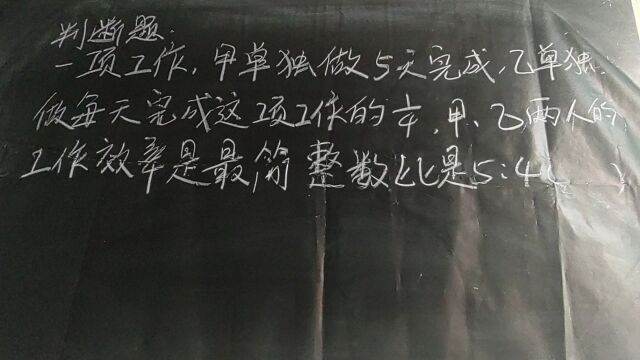 判断题:
一项工作,甲单独做5天完成,乙单独
做每天完成这项工作的1/4,甲、乙两人的
工作效率是最简整数比是5:4( )